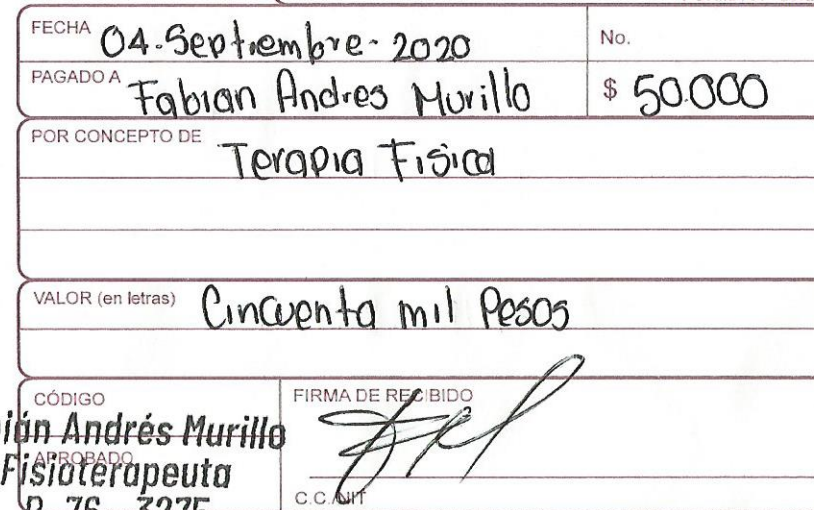 FECHA 04-Septiembre-2020 No.
PAGADO A Fabian Andres Murillo $ 50.000
POR CONCEPTO DE Terapia Fisica
VALOR (en letras) Cincuenta mil Pesos
CÓDIGO FIRMA DE RECIBIDO
ián Andrés Murillo
APROBADO
Fisioterapeuta
C.C./NIT
76 3275